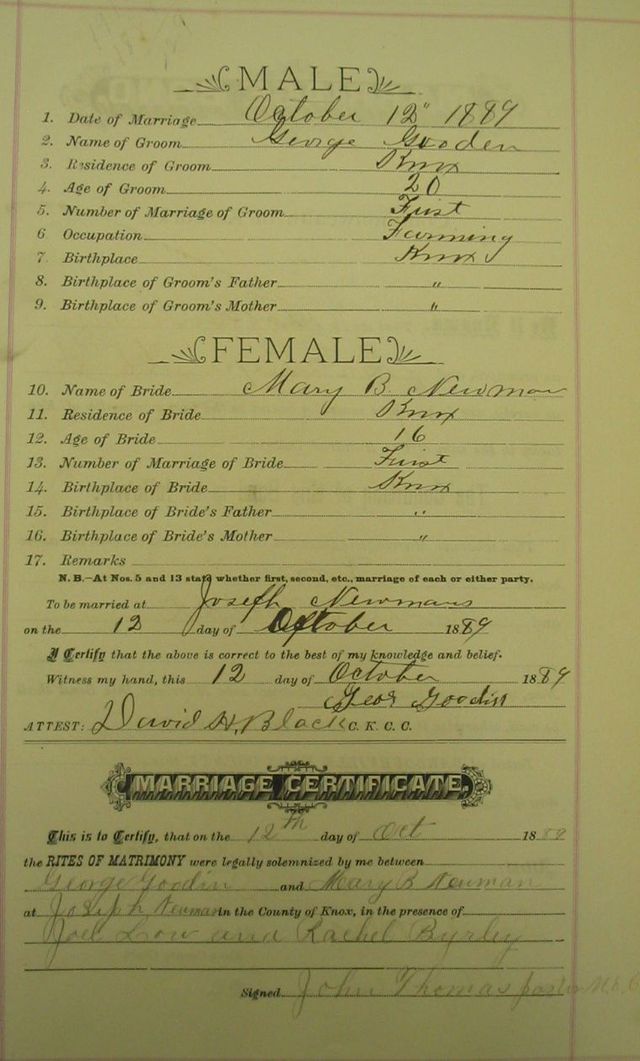 MALE
1. Date of Marriage October 12" 1889
2. Name of Groom George Gooden
3. Residence of Groom Knox
4. Age of Groom 20
5. Number of Marriage of Groom First
6 Occupation Farming
7. Birthplace Knox
8. Birthplace of Groom's Father "
9. Birthplace of Groom's Mother "
FEMALE
10. Name of Bride Mary B Newman
11. Residence of Bride Knox
12. Age of Bride 16
13. Number of Marriage of Bride First
14. Birthplace of Bride Knox
15. Birthplace of Bride's Father "
16. Birthplace of Bride's Mother "
17. Remarks
N. B.—At Nos. 5 and 13 state whether first, second, etc., marriage of each or either party.
To be married at Joseph Newmans
on the 12 day of October 1889
I Certify that the above is correct to the best of my knowledge and belief.
Witness my hand, this 12 day of October 1889
Geor Goodin
ATTEST: David H. Black C. K. C. C.
MARRIAGE CERTIFICATE.
This is to Certify, that on the 12th day of Oct 1889
the RITES OF MATRIMONY were legally solemnized by me between
George Goodin and Mary B Neuman
at Joseph Neuman in the County of Knox, in the presence of
Joel and Rachel Byrley
Signed John Thomas pastor M.E.C